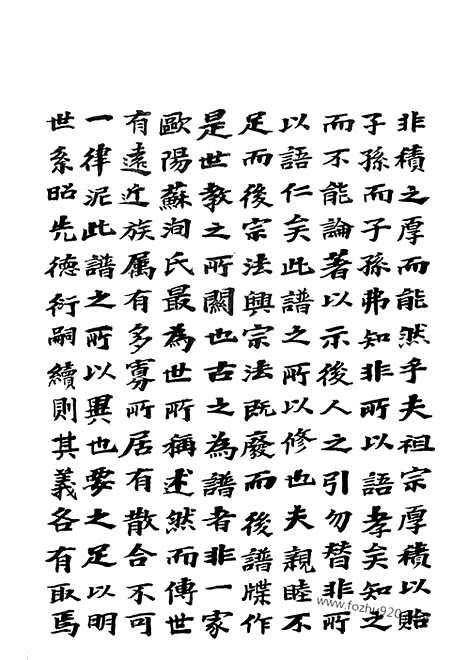 非積之厚而能然乎夫祖宗厚積以貽
子孫而子孫弗知非所以語孝矣知之
而不能論著以示後人之引勿替非所
以語仁矣此譜之所以修也夫親睦不
足而後宗法興宗法既廢而後譜牒作
是世教之所關也古之為譜者非一家
歐陽蘇洵氏最為世所稱述然而傳世
有遠近族厲有多寡所居有散合不可
一律泥此譜之所以異也要之足以明
世系昭先德衍嗣續則其義各有取焉
www.fozhu920